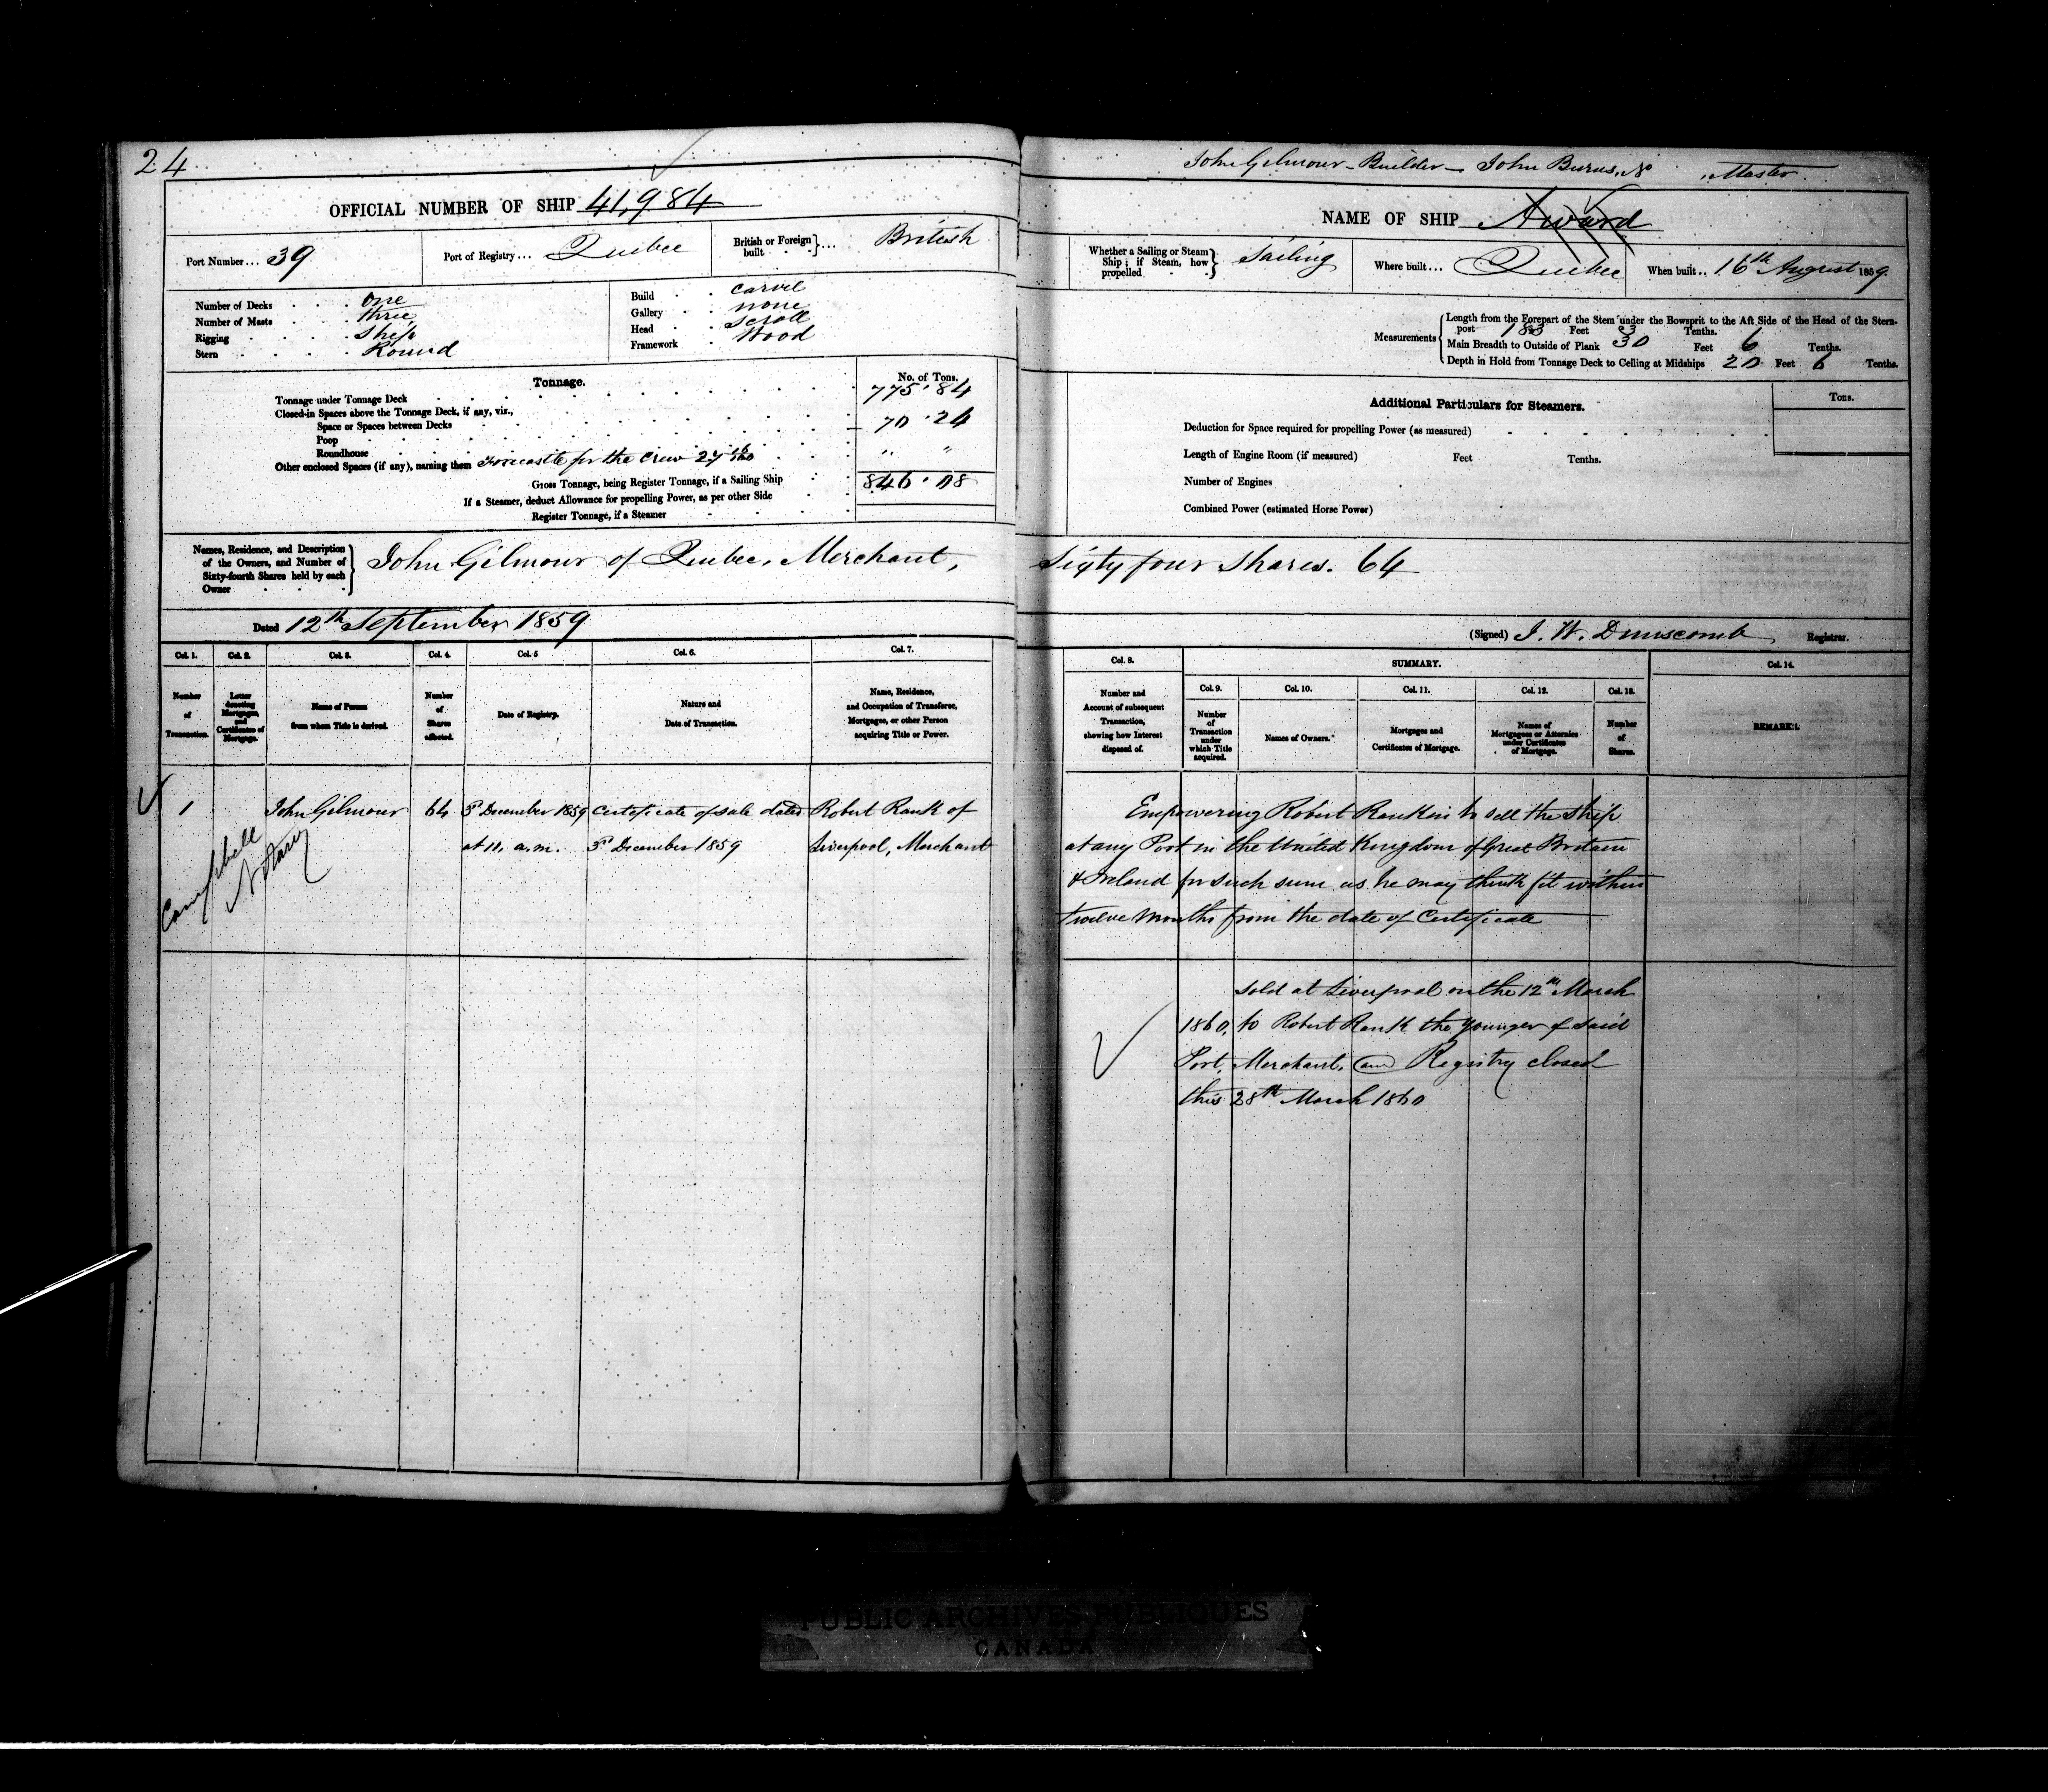 24
John Gilmour - Builder - John Burns, Master.
OFFICIAL NUMBER OF SHIP 41,984
NAME OF SHIP Award
Port Number... 39
Port of Registry... Quebec
British or Foreign built } ... British
Whether a Sailing or Steam Ship; if Steam, how propelled } Sailing
Where built... Quebec
When built.. 16th August 1859.
Number of Decks one
Number of Masts three
Rigging Ship
Stern Round
Build carvel
Gallery none
Head scroll
Framework Wood
Measurements
Length from the Forepart of the Stem under the Bowsprit to the Aft Side of the Head of the Stern-
post 183 Feet 3 Tenths.
Main Breadth to Outside of Plank 30 Feet 6 Tenths.
Depth in Hold from Tonnage Deck to Ceiling at Midships 20 Feet 6 Tenths.
Tonnage. No. of Tons.
Tonnage under Tonnage Deck 775.84
Closed-in Spaces above the Tonnage Deck, if any, viz.,
Space or Spaces between Decks 70.24
Poop
Roundhouse " "
Other enclosed Spaces (if any), naming them Forecastle for the Crew 27
Gross Tonnage, being Register Tonnage, if a Sailing Ship 846.08
If a Steamer, deduct Allowance for propelling Power, as per other Side
Register Tonnage, if a Steamer
Additional Particulars for Steamers. Tons.
Deduction for Space required for propelling Power (as measured)
Length of Engine Room (if measured) Feet Tenths.
Number of Engines
Combined Power (estimated Horse Power)
Names, Residence, and Description
of the Owners, and Number of
Sixty-fourth Shares held by each
Owner
John Gilmour of Quebec, Merchant, Sixty four Shares. 64
Dated 12th September 1859
(Signed) J. W. Dunscomb Registrar.
Col. 1. Col. 2. Col. 3. Col. 4. Col. 5 Col. 6. Col. 7.
Number of Transaction.
Letter denoting Mortgages, and Certificates of Mortgage.
Name of Person from whom Title is derived.
Number of Shares affected.
Date of Registry.
Nature and Date of Transaction.
Name, Residence, and Occupation of Transferee, Mortgagee, or other Person acquiring Title or Power.
Col. 8. SUMMARY. Col. 14.
Col. 9. Col. 10. Col. 11. Col. 12. Col. 13.
Number and Account of subsequent Transaction, showing how Interest disposed of.
Number of Transaction under which Title acquired.
Names of Owners.
Mortgages and Certificates of Mortgage.
Names of Mortgagees or Attornies under Certificates of Mortgage.
Number of Shares.
REMARKS.
1 John Gilmour 64 5th December 1859 Certificate of sale dated Robert Rank of
at 11, a.m. 5th December 1859 Liverpool, Merchant
Campbell
Notary
Empowering Robert Rankin to sell the Ship
at any Port in the United Kingdom of Great Britain
& Ireland for such sum as he may think fit within
twelve Months from the date of Certificate
Sold at Liverpool on the 12th March
1860, to Robert Rank the Younger of said
Port, Merchant, and Registry closed
this 28th March 1860
PUBLIC ARCHIVES PUBLIQUES
CANADA